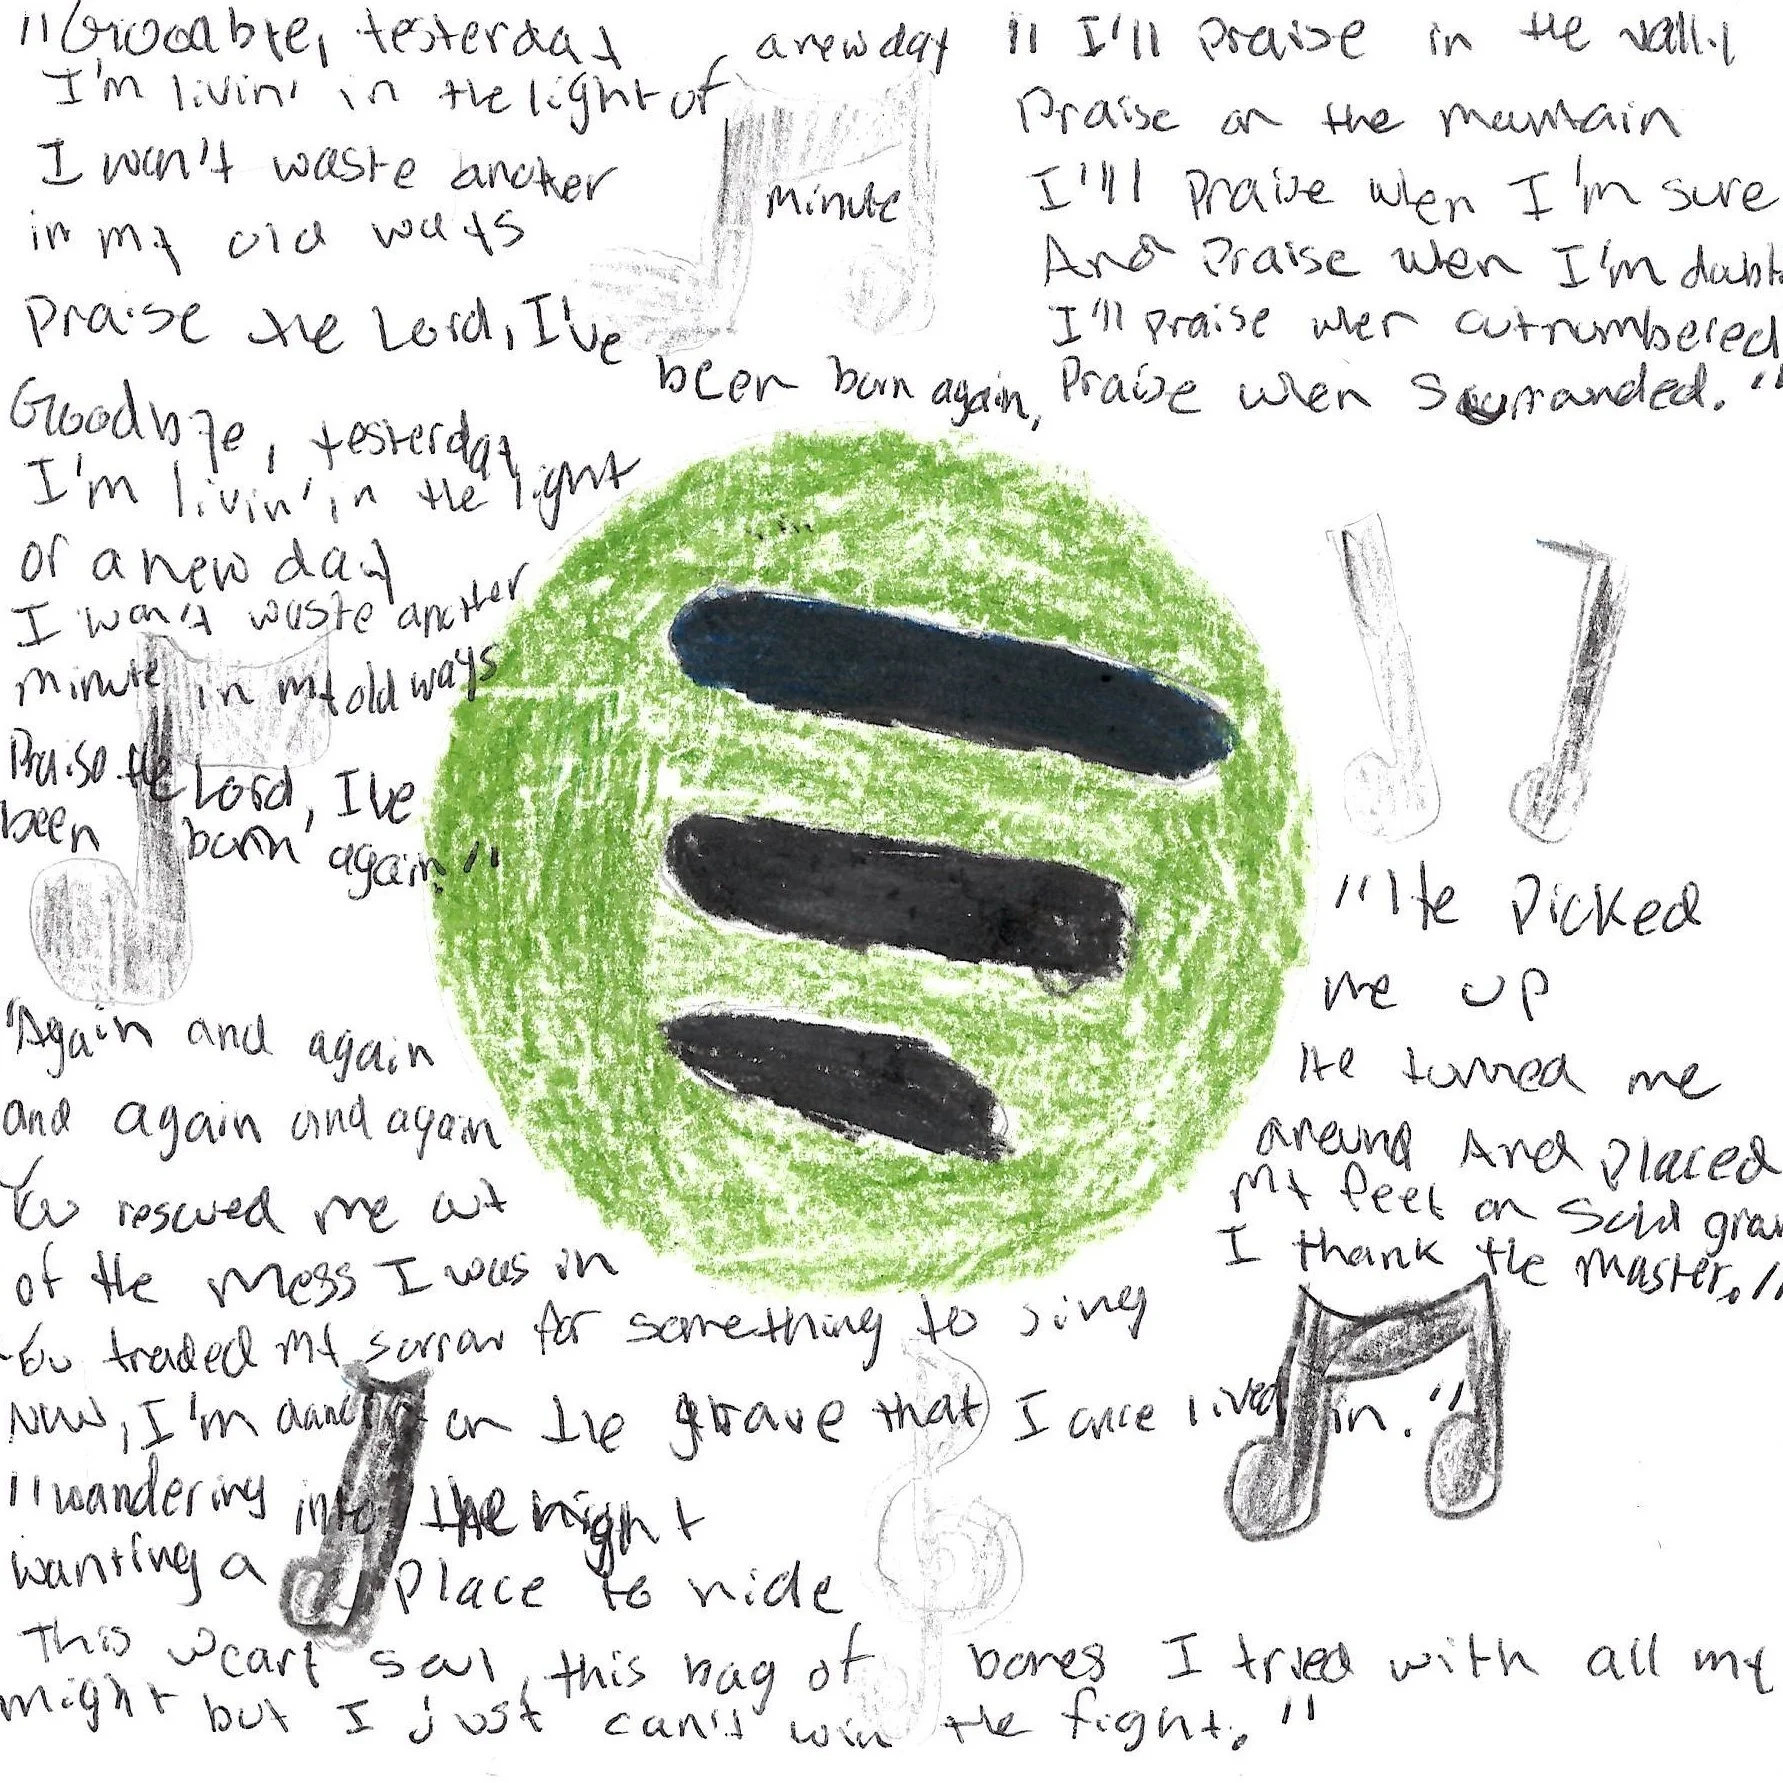 "Goodbye, yesterday
I'm livin' in the light of a new day
I won't waste another minute
in my old ways
Praise the Lord, I've been born again,
Goodbye, yesterday
I'm livin' in the light
of a new day
I won't waste another
minute in my old ways
Praise the Lord, I've
been born again."
"I'll praise in the vally
Praise on the mountain
I'll praise when I'm sure
And praise when I'm
I'll praise when outnumbered
Praise when surrounded."
"He picked
me up
He turned me
around And placed
my feet on solid
I thank the master."
"Again and again
and again and again
You rescued me out
of the mess I was in
You traded my sorrow for something to sing
Now, I'm on the grave that I once lived in."
"wandering into the night
wanting a place to hide
This weary soul, this bag of bones I tried with all my
might but I just can't win the fight."